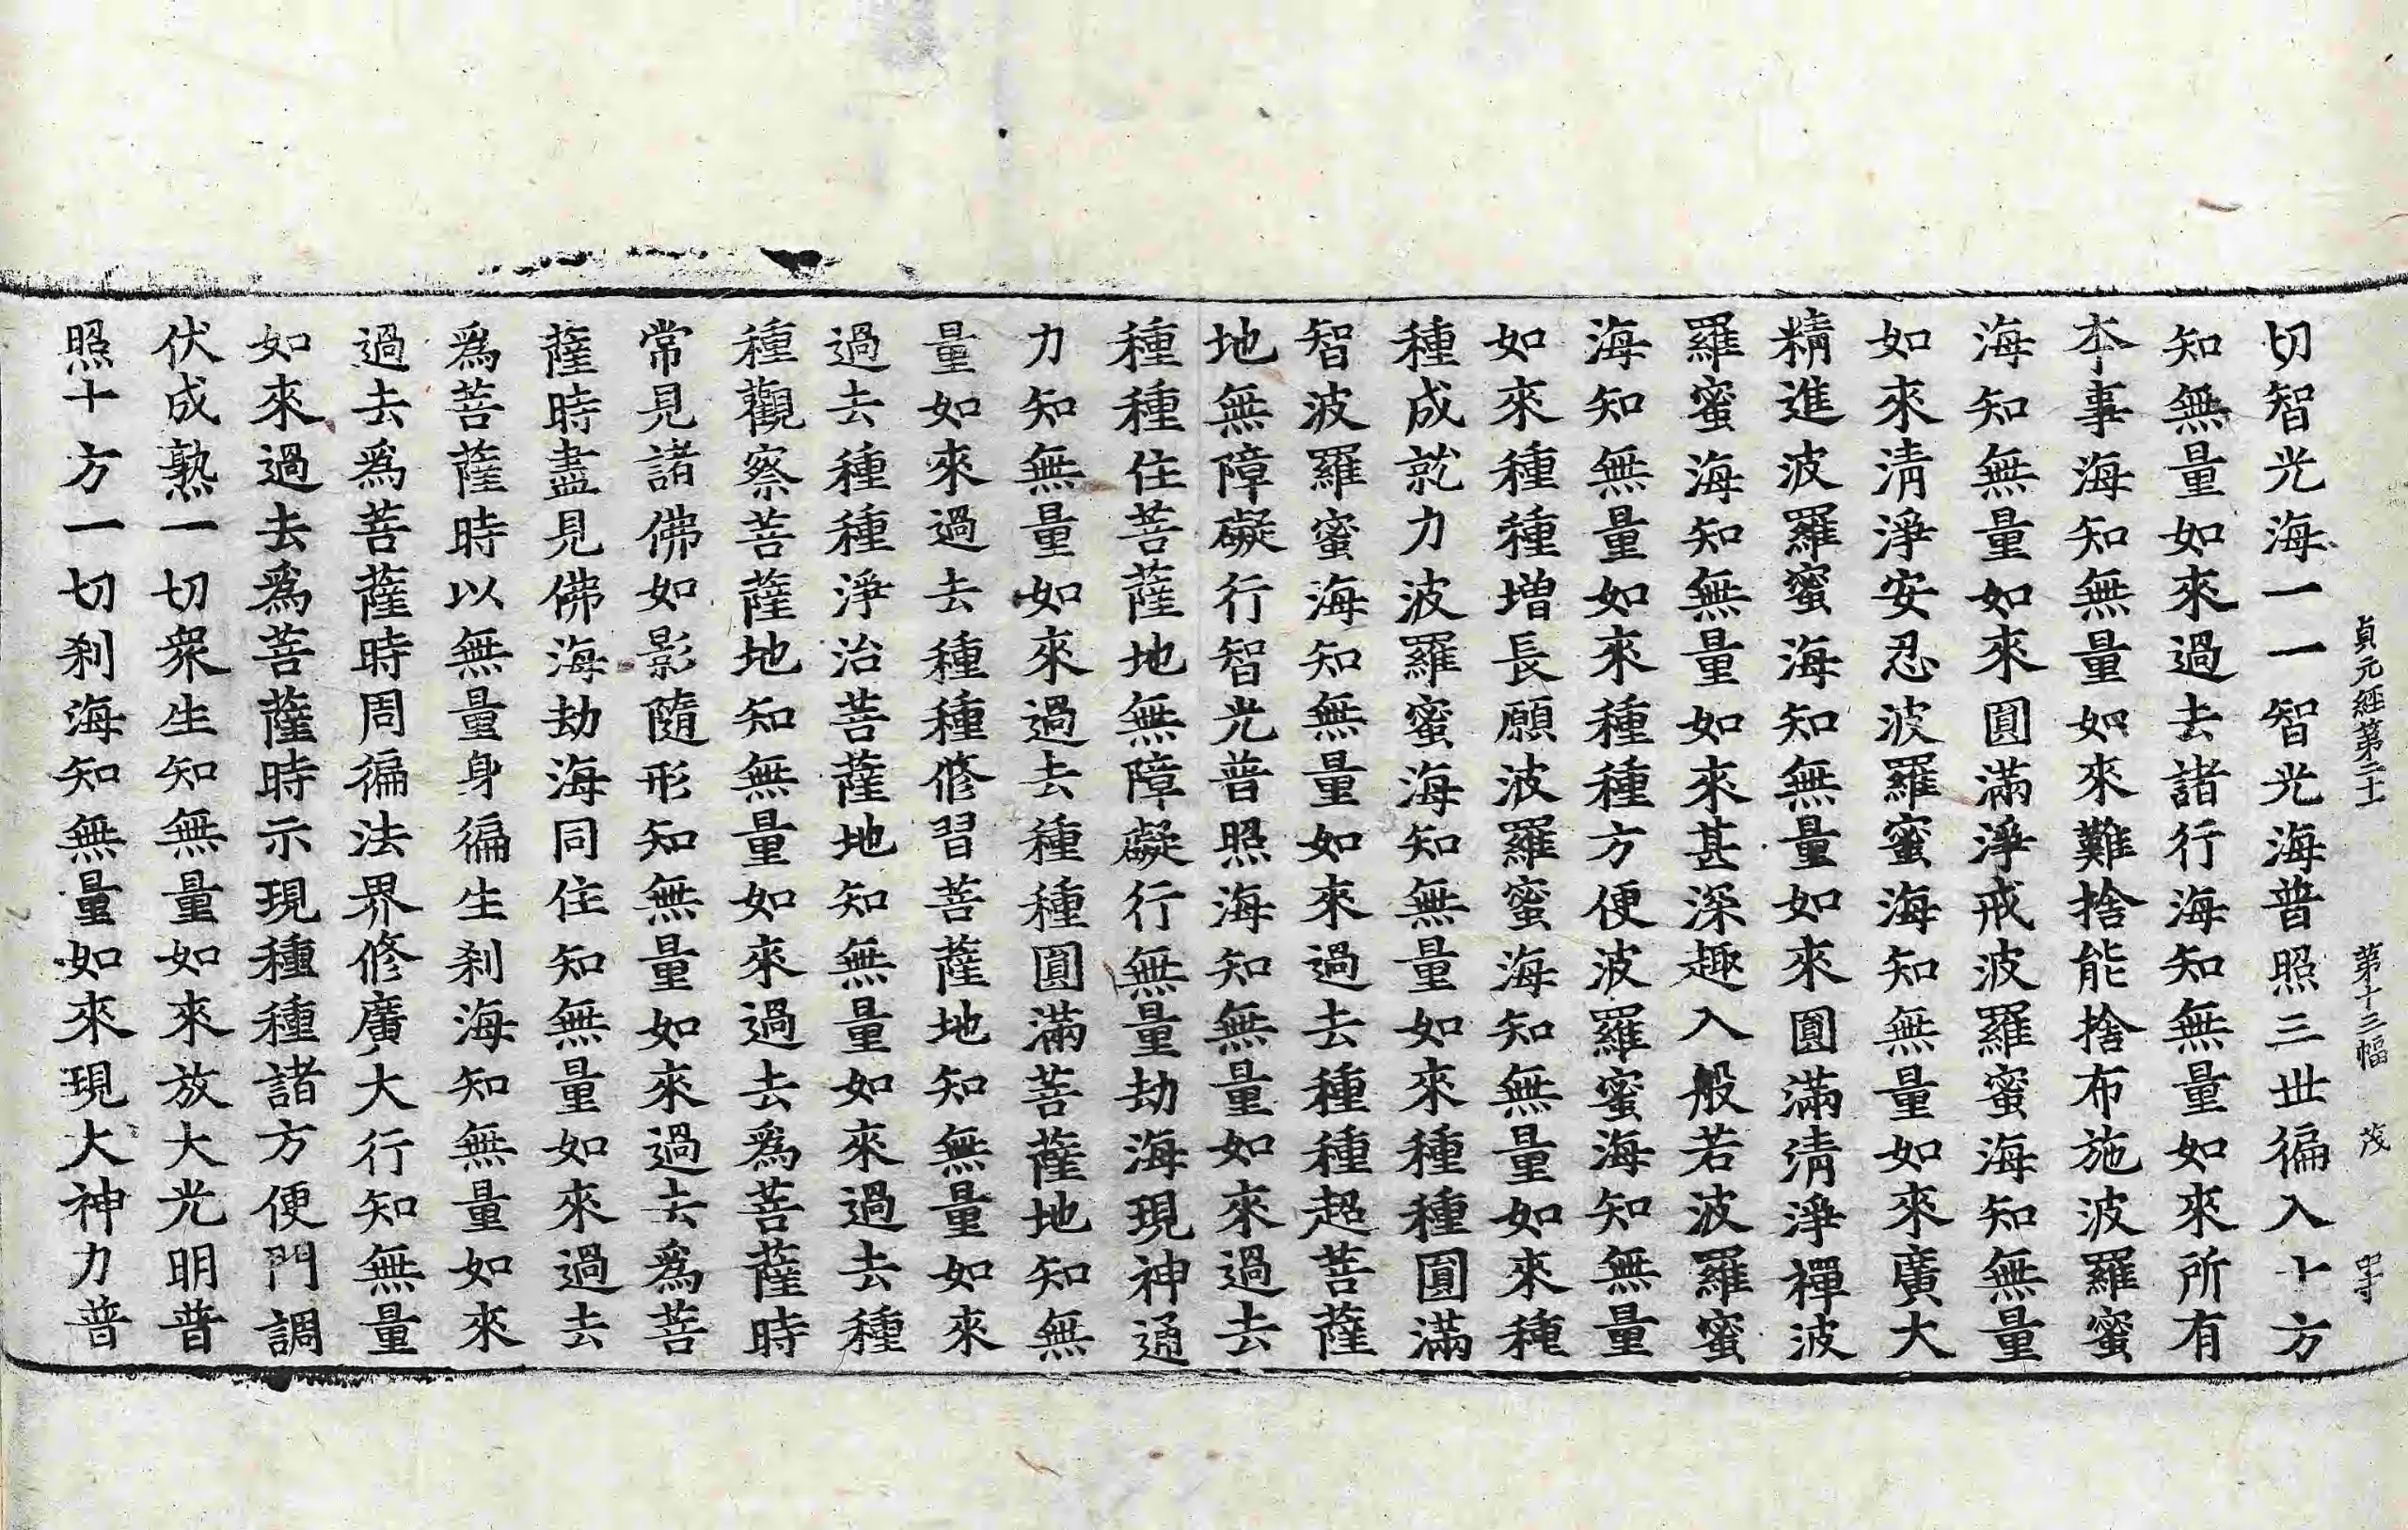 貞元經第二十 第十三幅 茂
切智光海一一智光海普照三世徧入十方
知無量如來過去諸行海知無量如來所有
本事海知無量如來難捨能捨布施波羅蜜
海知無量如來圓滿淨戒波羅蜜海知無量
如來清淨安忍波羅蜜海知無量如來廣大
精進波羅蜜海知無量如來圓滿清淨禪波
羅蜜海知無量如來甚深趣入般若波羅蜜
海知無量如來種種方便波羅蜜海知無量
如來種種增長願波羅蜜海知無量如來種
種成就力波羅蜜海知無量如來種種圓滿
智波羅蜜海知無量如來過去種種超菩薩
地無障礙行智光普照海知無量如來過去
種種住菩薩地無障礙行無量劫海現神通
力知無量如來過去種種圓滿菩薩地知無
量如來過去種種修習菩薩地知無量如來
過去種種淨治菩薩地知無量如來過去種
種觀察菩薩地知無量如來過去爲菩薩時
常見諸佛如影隨形知無量如來過去爲菩
薩時盡見佛海劫海同住知無量如來過去
爲菩薩時以無量身徧生刹海知無量如來
過去爲菩薩時周徧法界修廣大行知無量
如來過去爲菩薩時示現種種諸方便門調
伏成熟一切衆生知無量如來放大光明普
照十方一切刹海知無量如來現大神力普